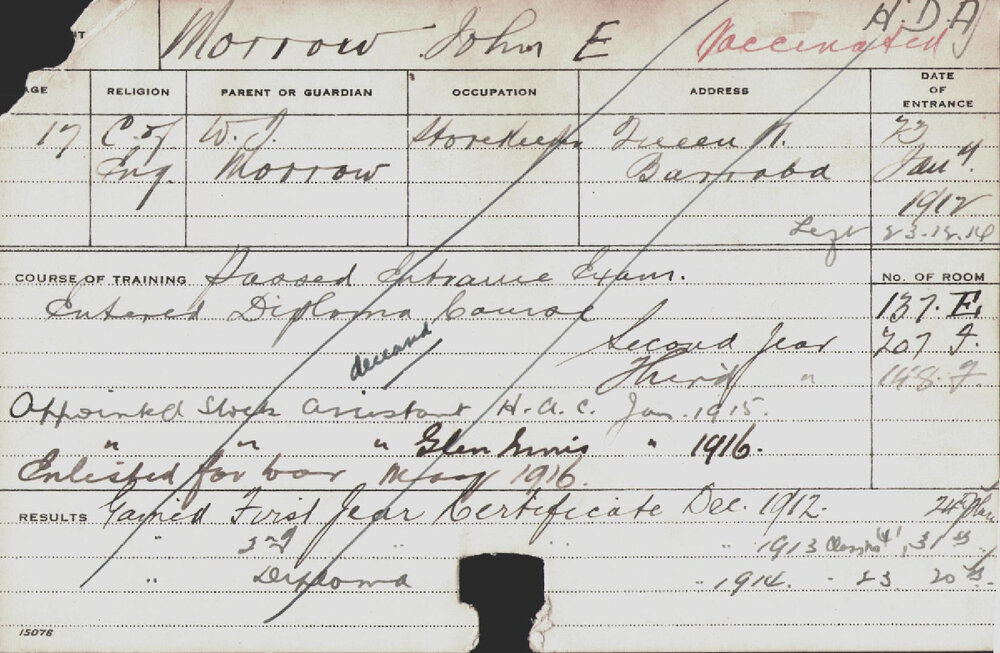 H.D.A
Morrow John E Vaccinated
AGE RELIGION PARENT OR GUARDIAN OCCUPATION ADDRESS DATE OF ENTRANCE
17 C. of W. J. Storekeeper Queen St.
Eng. Morrow Barraba Jan 
1912
Left 23.12.14
COURSE OF TRAINING Passed Entrance Exam. No. OF ROOM
Entered Diploma Course 137. E.
Second Year 207 F.
deceased
Third " 148. F.
Appointed Stock Assistant H.A.C. Jan. 1915.
" " " Glen Innis " 1916.
Enlisted for War May 1916.
RESULTS Gained First Year Certificate Dec. 1912. 24th Place
" 2nd " " 1913 31st
" Diploma " 1914. - 23 20th
15076